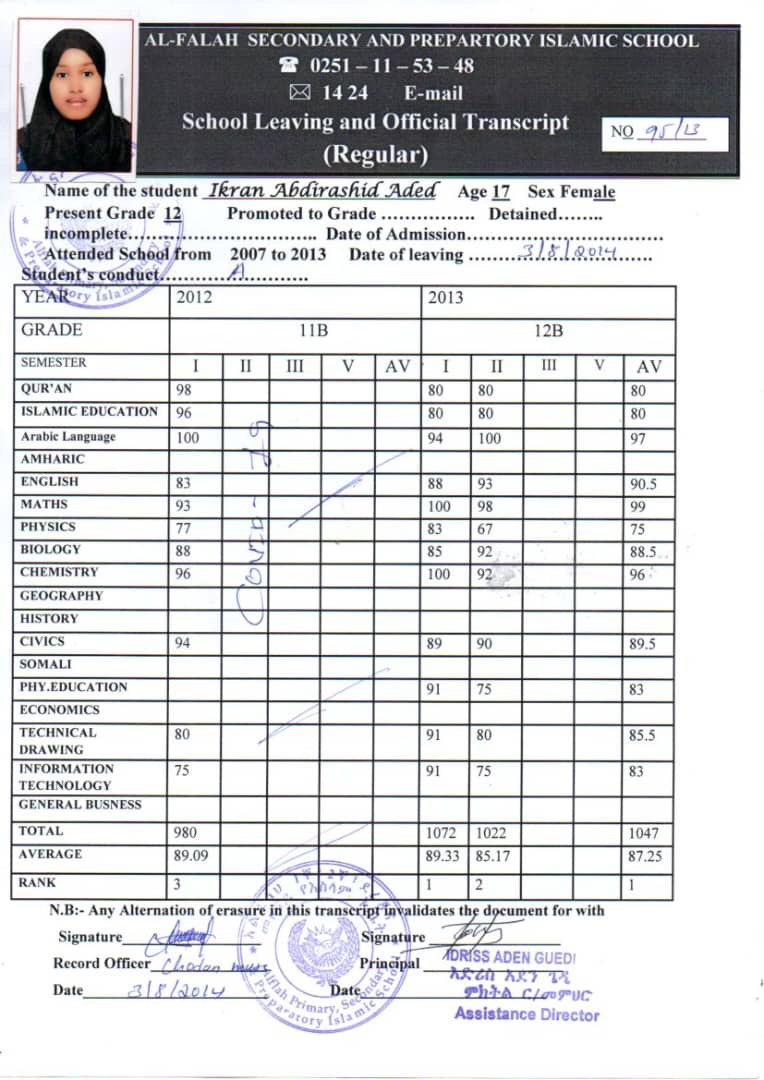 AL-FALAH SECONDARY AND PREPARTORY ISLAMIC SCHOOL
☎ 0251 – 11 – 53 – 48
✉ 14 24 E-mail
School Leaving and Official Transcript
(Regular)
NO 95/13
Name of the student Ikran Abdirashid Aded Age 17 Sex Female
Present Grade 12 Promoted to Grade ................ Detained........
incomplete................................ Date of Admission.................................
Attended School from 2007 to 2013 Date of leaving .........3/8/2014.........
Student's conduct............A............
YEAR 2012 2013
GRADE 11B 12B
SEMESTER I II III V AV I II III V AV
QUR'AN 98 80 80 80
ISLAMIC EDUCATION 96 80 80 80
Arabic Language 100 94 100 97
AMHARIC
ENGLISH 83 88 93 90.5
MATHS 93 100 98 99
PHYSICS 77 83 67 75
BIOLOGY 88 85 92 88.5
CHEMISTRY 96 100 92 96
GEOGRAPHY
HISTORY
CIVICS 94 89 90 89.5
SOMALI
PHY.EDUCATION 91 75 83
ECONOMICS
TECHNICAL
DRAWING 80 91 80 85.5
INFORMATION
TECHNOLOGY 75 91 75 83
GENERAL BUSNESS
TOTAL 980 1072 1022 1047
AVERAGE 89.09 89.33 85.17 87.25
RANK 3 1 2 1
Covid-19
N.B:- Any Alternation of erasure in this transcript invalidates the document for with
Signature Signature
Record Officer Chodan Principal IDRISS ADEN GUEDI
አድሪስ አደን ጌዲ
Date 3/8/2014 Date ምክትል ር/መምህር
Assistance Director
Alflah Primary, Secondary
& Preparatory Islamic School